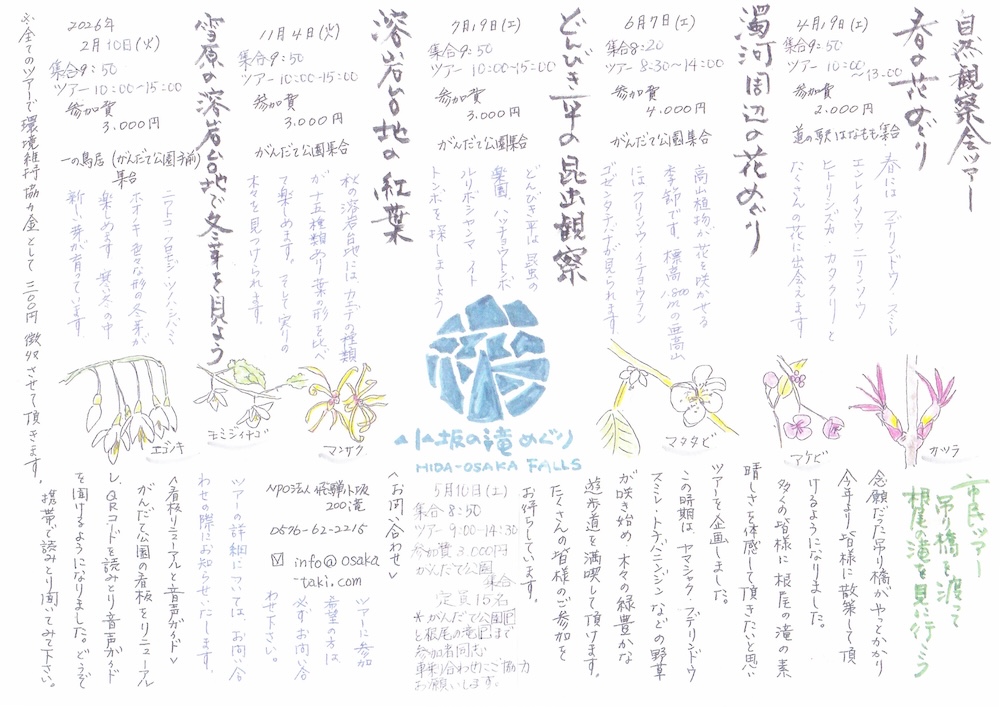 自然観察会ツアー
春の花めぐり
4月19日(土)
集合9:50
ツアー 10:00
～13:00
参加費
2.000円
道の駅はなもも集合
春には フデリンドウ・スミレ
エンレイソウ・ニリンソウ
ヒトリシズカ・カタクリ と
たくさんの花に出会えます
濁河周辺の花めぐり
6月7日(土)
集合8:20
ツアー 8:30～14:00
参加費
4.000円
がんだて公園集合
高山植物が花を咲かせる
季節です。標高1,800mの亜高山
にはツリソウ イチヨウラン
ゴゼンタチバナが見られます。
どんびき平の昆虫観察
7月19日(土)
集合9:50
ツアー 10:00～15:00
参加費
3.000円
がんだて公園集合
どんびき平は昆虫の
楽園、ハッチョウトンボ
ルリボシヤンマ イート
トンボを探しましょう
溶岩台地の紅葉
11月4日(火)
集合9:50
ツアー 10:00～15:00
参加費
3.000円
がんだて公園集合
秋の溶岩台地には カエデの種類
が 十五種類あり 葉の形を比べ
て楽しめます。そして実りの
木々を見つけられます。
雪原の溶岩台地で冬芽を見よう
2026年
2月10日(火)
集合9:50
ツアー 10:00～15:00
参加費
3.000円
一の鳥居(がんだて公園手前)
集合
ニワトコ クロモジ・ツノハシバミ
ホオノキ 色々な形の冬芽が
楽しめます 寒い冬の中
新しい芽が育っています
※全てのツアーで環境維持協力金として 二〇〇円 徴収させて頂きます。
カツラ
アケビ
マタタビ
小坂の滝めぐり
HIDA-OSAKA FALLS
マンサク
モミジイチゴ
エゴノキ
市民ツアー
吊り橋を渡って
根尾の滝を見に行こう
念願だった吊り橋がやっとかかり
今年より皆様に散策して頂
けるようになりました。
多くの皆様に根尾の滝の素
晴しさを体感して頂きたいと思い
ツアーを企画しました。
この時期は、ヤマシャク、フデリンドウ
スミレ・トチバニンジンなどの野草
が咲き始め 木々の緑豊かな
遊歩道を満喫して頂けます。
たくさんの皆様のご参加を
お待ちしています。
5月10日(土)
集合 8:50
ツアー 9:00-14:30
参加費 3.000円
がんだて公園
集合
定員15名
*がんだて公園P
と根尾の滝Pまで
参加者同志
車乗り合わせにご協力
お願いします。
<お問い合わせ>
NPO法人 飛騨小坂
200滝
0576-62-2215
info@osaka
-taki.com
ツアーに参加
希望の方は
必ずお問い合
わせ下さい。
ツアーの詳細については、お問い合
わせの際にお知らせいたします。
<看板リニューアルと音声ガイド>
がんだて公園の看板をリニューアル
し、QRコードを読みとり音声ガイド
を聞けるようになりました。どうぞ
携帯で読みとり聞いてみて下さい。